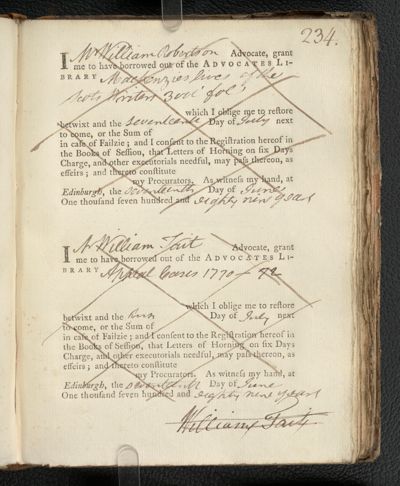 234.
I Mr William Robertson Advocate, grant
me to have borrowed out of the ADVOCATES LI-
BRARY Mackenzies lives of the
Scots Writers 3 vol. fol.
which I oblige me to reſtore
betwixt and the seventeenth Day of July next
to come, or the Sum of
in caſe of Failzie; and I conſent to the Regiſtration hereof in
the Books of Seſſion, that Letters of Horning on ſix Days
Charge, and other executorials needful, may paſs thereon, as
effeirs; and thereto conſtitute
my Procurators. As witneſs my hand, at
Edinburgh, the seventeenth Day of June
One thouſand ſeven hundred and eighty nine years
I William Tait Advocate, grant
me to have borrowed out of the ADVOCATES LI-
BRARY Appeal Cases 1770
which I oblige me to reſtore
betwixt and the Day of July next
to come, or the Sum of
in caſe of Failzie; and I conſent to the Regiſtration hereof in
the Books of Seſſion, that Letters of Horning on ſix Days
Charge, and other executorials needful, may paſs thereon, as
effeirs; and thereto conſtitute
my Procurators. As witneſs my hand, at
Edinburgh, the Day of June
One thouſand ſeven hundred and eighty nine years
William Tait